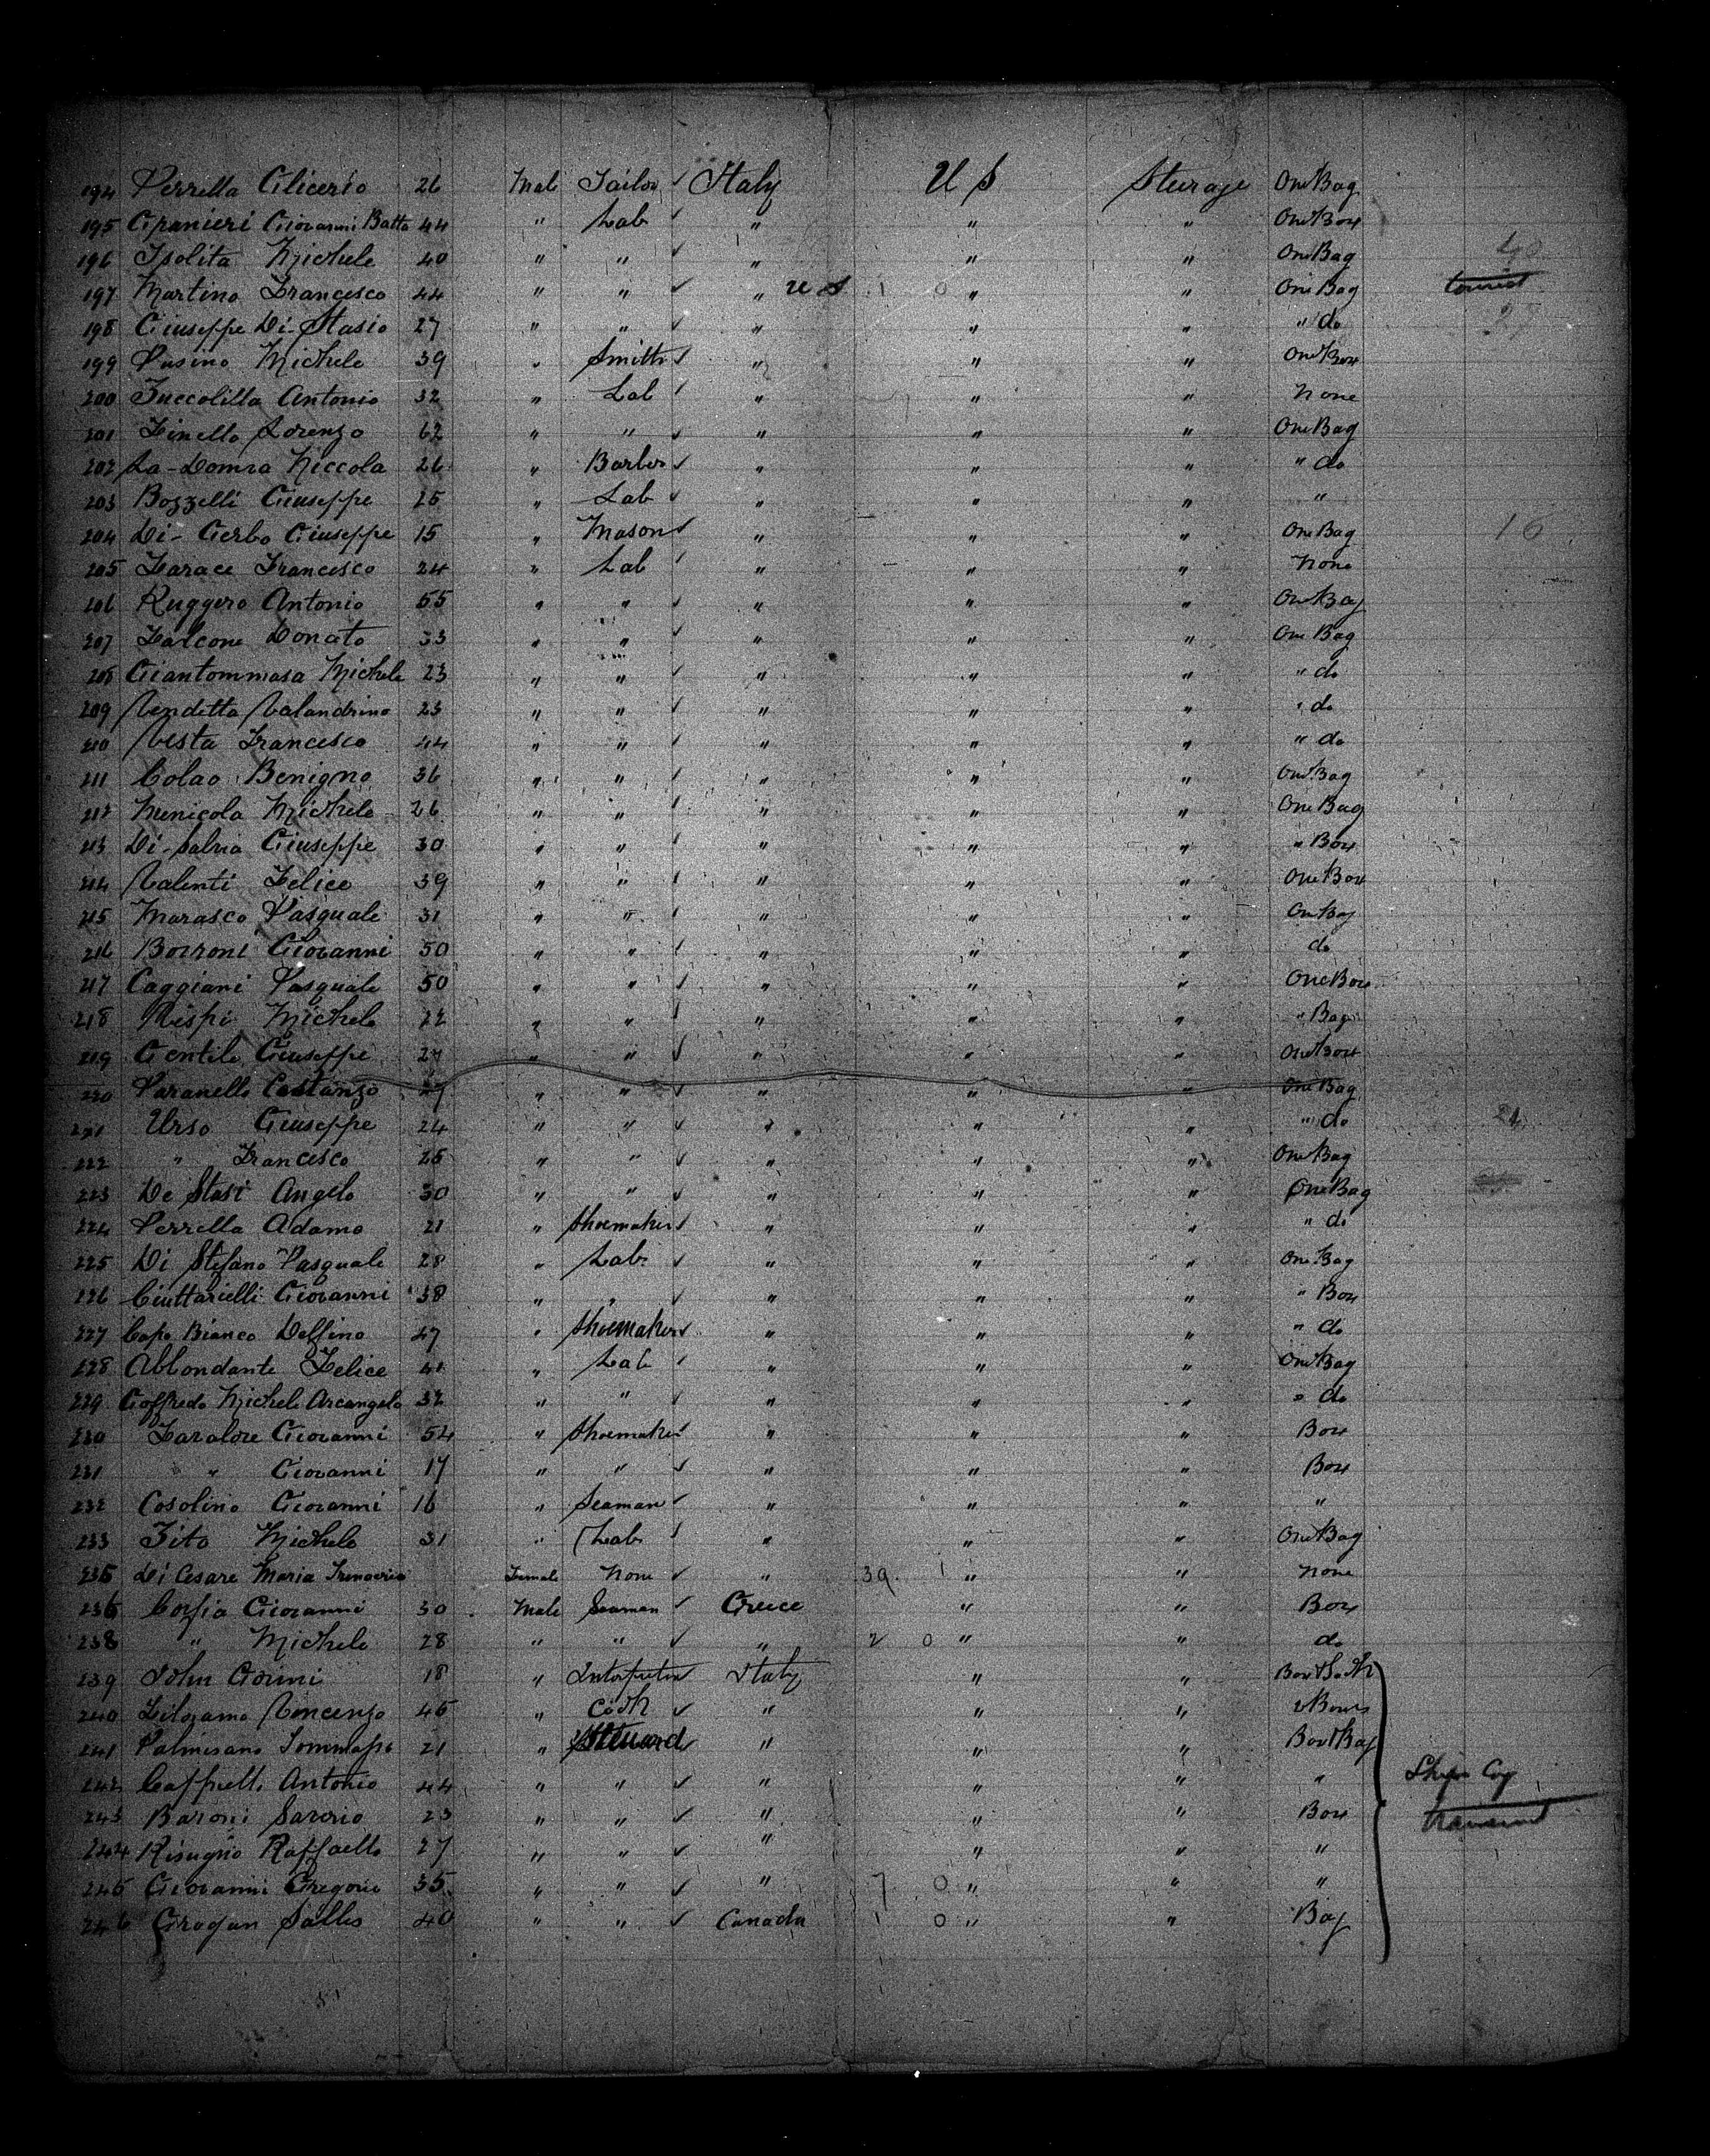 194 Perrella Glicerio 26 Male Tailor ✓ Italy U S Steerage One Bag
195 Granieri Giovanni Batta 44 " Lab ✓ " " " One Box
196 Isolita Michele 40 " " ✓ " " " One Bag 40
197 Martino Francesco 44 " " ✓ " U S 1 0 " " One Bag tourist
198 Giuseppe Di-Stasio 27 " " ✓ " " " " do 27
199 Pusino Michele 39 " Smith ✓ " " " One Box
200 Zuccolilla Antonio 32 " Lab ✓ " " " None
201 Finello Lorenzo 62 " " ✓ " " " One Bag
202 La-Donna Niccola 26 " Barber ✓ " " " " do
203 Bozzelli Giuseppe 25 " Lab ✓ " " " "
204 Di-Gerbo Giuseppe 15 " Mason ✓ " " " One Bag 16
205 Farace Francesco 24 " Lab ✓ " " " None
206 Ruggero Antonio 55 " " ✓ " " " One Bag
207 Falcone Donato 33 " " ✓ " " " One Bag
208 Giantommasa Michele 23 " " ✓ " " " " do
209 Vendetta Valandrino 23 " " ✓ " " " " do
210 Vesta Francesco 44 " " ✓ " " " " do
211 Colao Benigno 36 " " ✓ " " " One Bag
212 Menicola Michele 26 " " ✓ " " " One Bag
213 Di-Salvia Giuseppe 30 " " ✓ " " " " Box
214 Valenti Felice 39 " " ✓ " " " One Box
215 Marasco Pasquale 31 " " ✓ " " " One Bag
216 Borroni Giovanni 50 " " ✓ " " " do
217 Caggiani Pasquale 50 " " ✓ " " " One Box
218 Rispi Michele 22 " " ✓ " " " " Bag
219 Gentile Giuseppe 27 " " ✓ " " " One Box
220 Paranello Costanzo " " ✓ " " " One Bag
221 Urso Giuseppe 24 " " ✓ " " " " do 24
222 " Francesco 25 " " ✓ " " " One Bag
223 De Stasi Angelo 30 " " ✓ " " " One Bag
224 Perrella Adamo 21 " Shoemaker ✓ " " " " do
225 Di Stefano Pasquale 28 " Lab ✓ " " " One Bag
226 Ciuttarielli Giovanni 38 " " ✓ " " " " Box
227 Capo Bianco Delfino 47 " Shoemaker ✓ " " " " do
228 Abbondante Felice 41 " Lab ✓ " " " One Bag
229 Goffredo Michele Arcangelo 32 " " ✓ " " " " do
230 Faralore Giovanni 54 " Shoemaker ✓ " " " Box
231 " Giovanni 17 " " ✓ " " " Box
232 Cosolino Giovanni 16 " Seaman ✓ " " " "
233 Zito Michele 31 " Lab ✓ " " " One Bag
235 Di Cesare Maria Female None ✓ " 39 1 " " None
236 Corfia Giovanni 30 Male Seaman ✓ Greece " " Box
238 " Michele 28 " " ✓ " 2 0 " " do
239 John Gorini 18 " Interpreter Italy " "
240 Filogamo Vincenzo 45 " Cook ✓ " " " 2 Boxes
241 Palmisano Tommaso 21 " Steward " " " Box & Bag
242 Cappielli Antonio 44 " " ✓ " " " " Ships Coy
243 Baroni Saverio 23 " " ✓ " " " Box transient
244 Risugno Raffaello 27 " " ✓ " " " "
245 Giovanni Gregorio 35 " " ✓ " 7 0 " " "
246 Grogan Salles 40 " " ✓ Canada 1 0 " " Bag